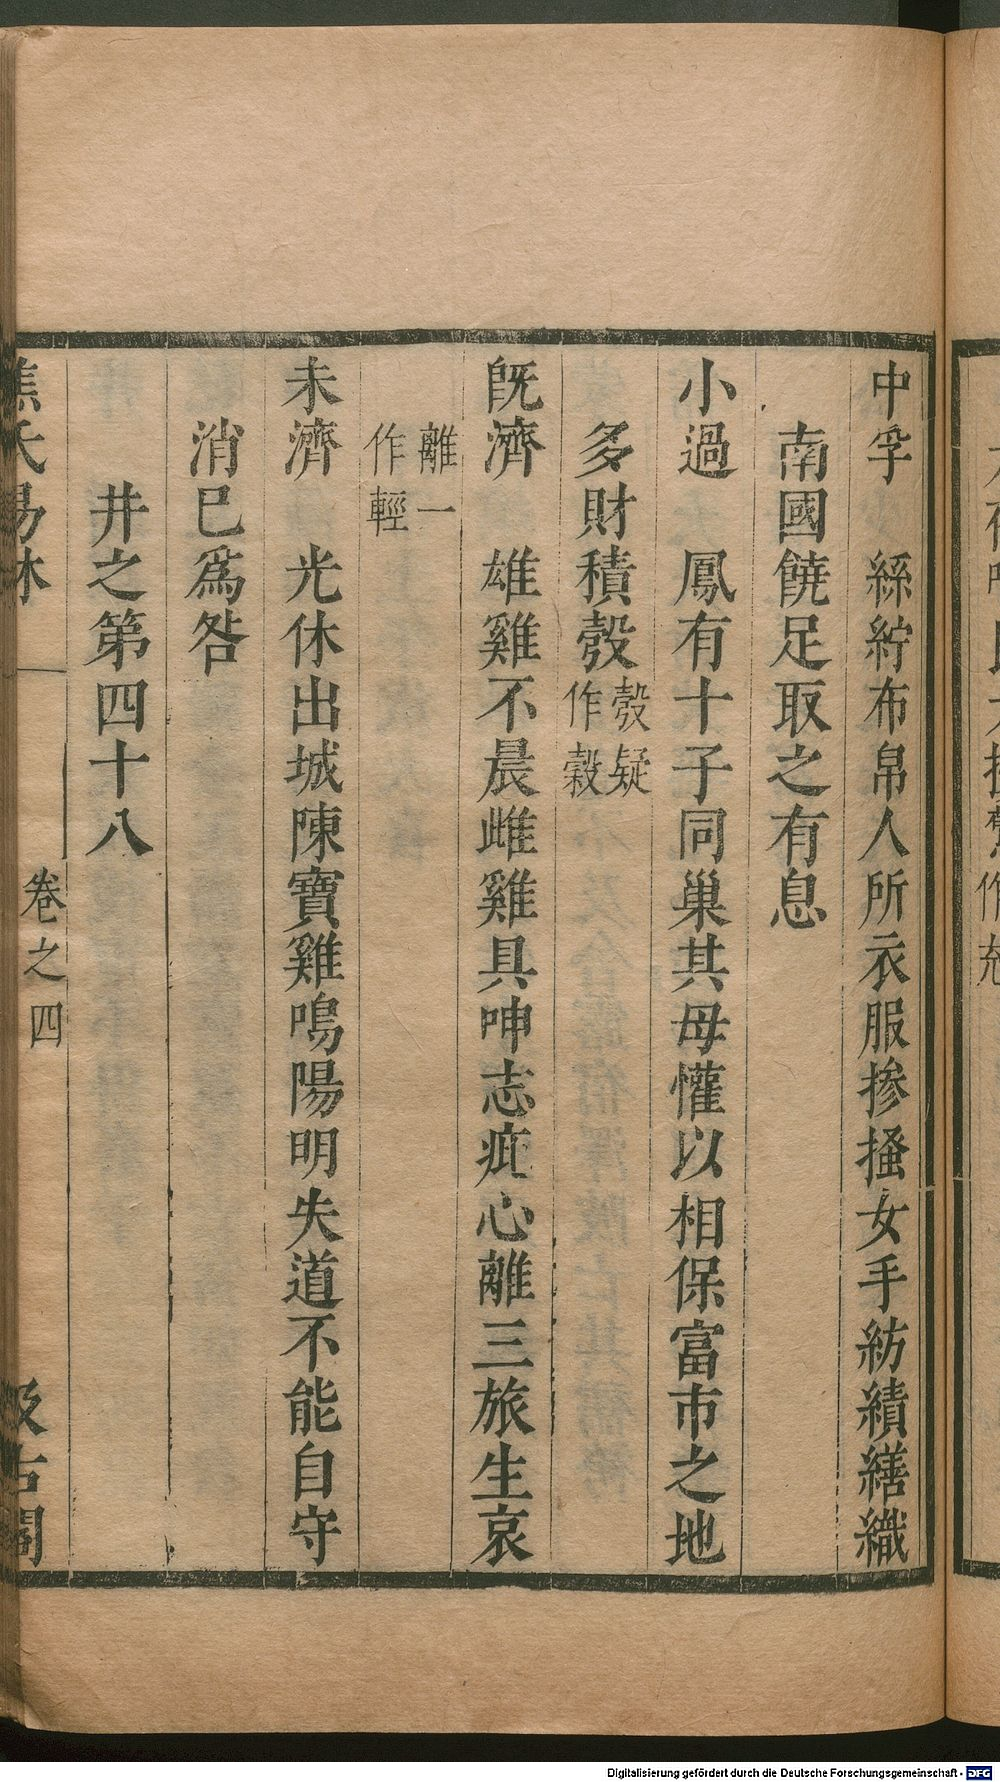 中孚　絲紵布帛人所衣服摻搔女手紡績繕織
南國饒足取之有息
小過　鳳有十子同巢其母懽以相保富市之地
多財積㝅㝅疑作穀
旣濟　雄雞不晨雌雞具呻志疵心離三旅生哀
離一作輕
未濟　光休出城陳寶雞鳴陽明失道不能自守
消巳爲咎
井之第四十八
焦氏易林　卷之四　汲古閣
Digitalisierung gefördert durch die Deutsche Forschungsgemeinschaft - DFG